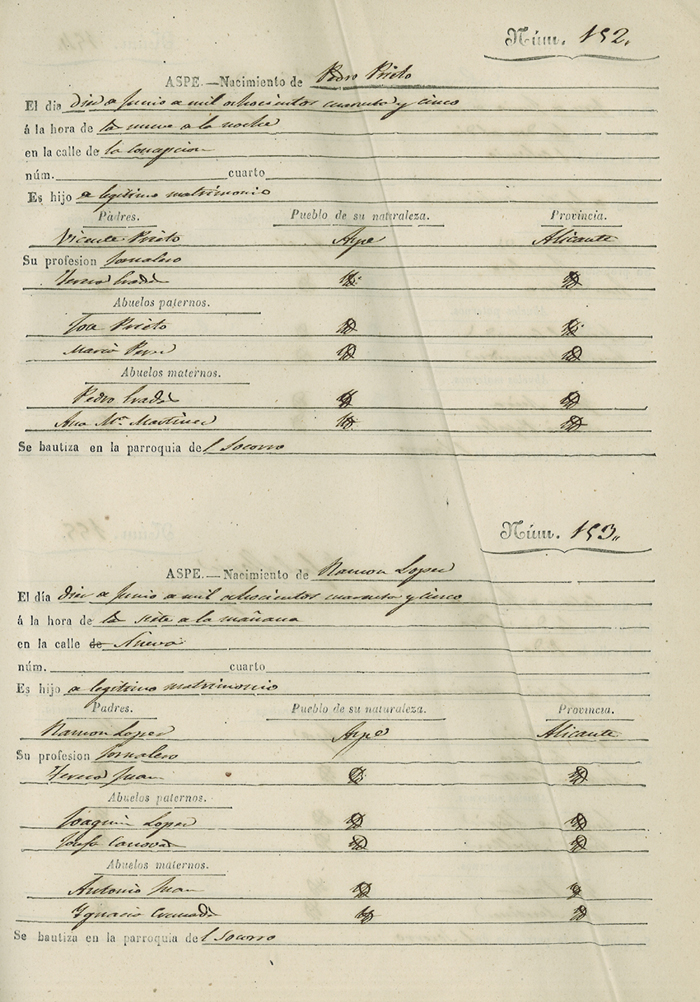 Núm. 152.
ASPE.—Nacimiento de Pedro Prieto
El dia diez de Junio de mil ochocientos cuarenta y cinco
á la hora de las nueve de la noche
en la calle de la Concepcion
núm. cuarto
Es hijo de legitimo matrimonio
Padres. Pueblo de su naturaleza. Provincia.
Vicente Prieto Aspe Alicante
Su profesion Jornalero
Teresa
Abuelos paternos.
Prieto
Maria
Abuelos maternos.
Pedro
Ana Mª Martinez
Se bautiza en la parroquia del Socorro
Núm. 153.
ASPE.—Nacimiento de Ramon Lopez
El día diez de Junio de mil ochocientos cuarenta y cinco
á la hora de las siete de la mañana
en la calle de Nueva
núm. cuarto
Es hijo de legitimo matrimonio
Padres. Pueblo de su naturaleza. Provincia.
Ramon Lopez Aspe Alicante
Su profesion Jornalero
Teresa Juan
Abuelos paternos.
Joaquin Lopez
Josefa Canovas
Abuelos maternos.
Antonio Juan
Ignacia Cremades
Se bautiza en la parroquia del Socorro